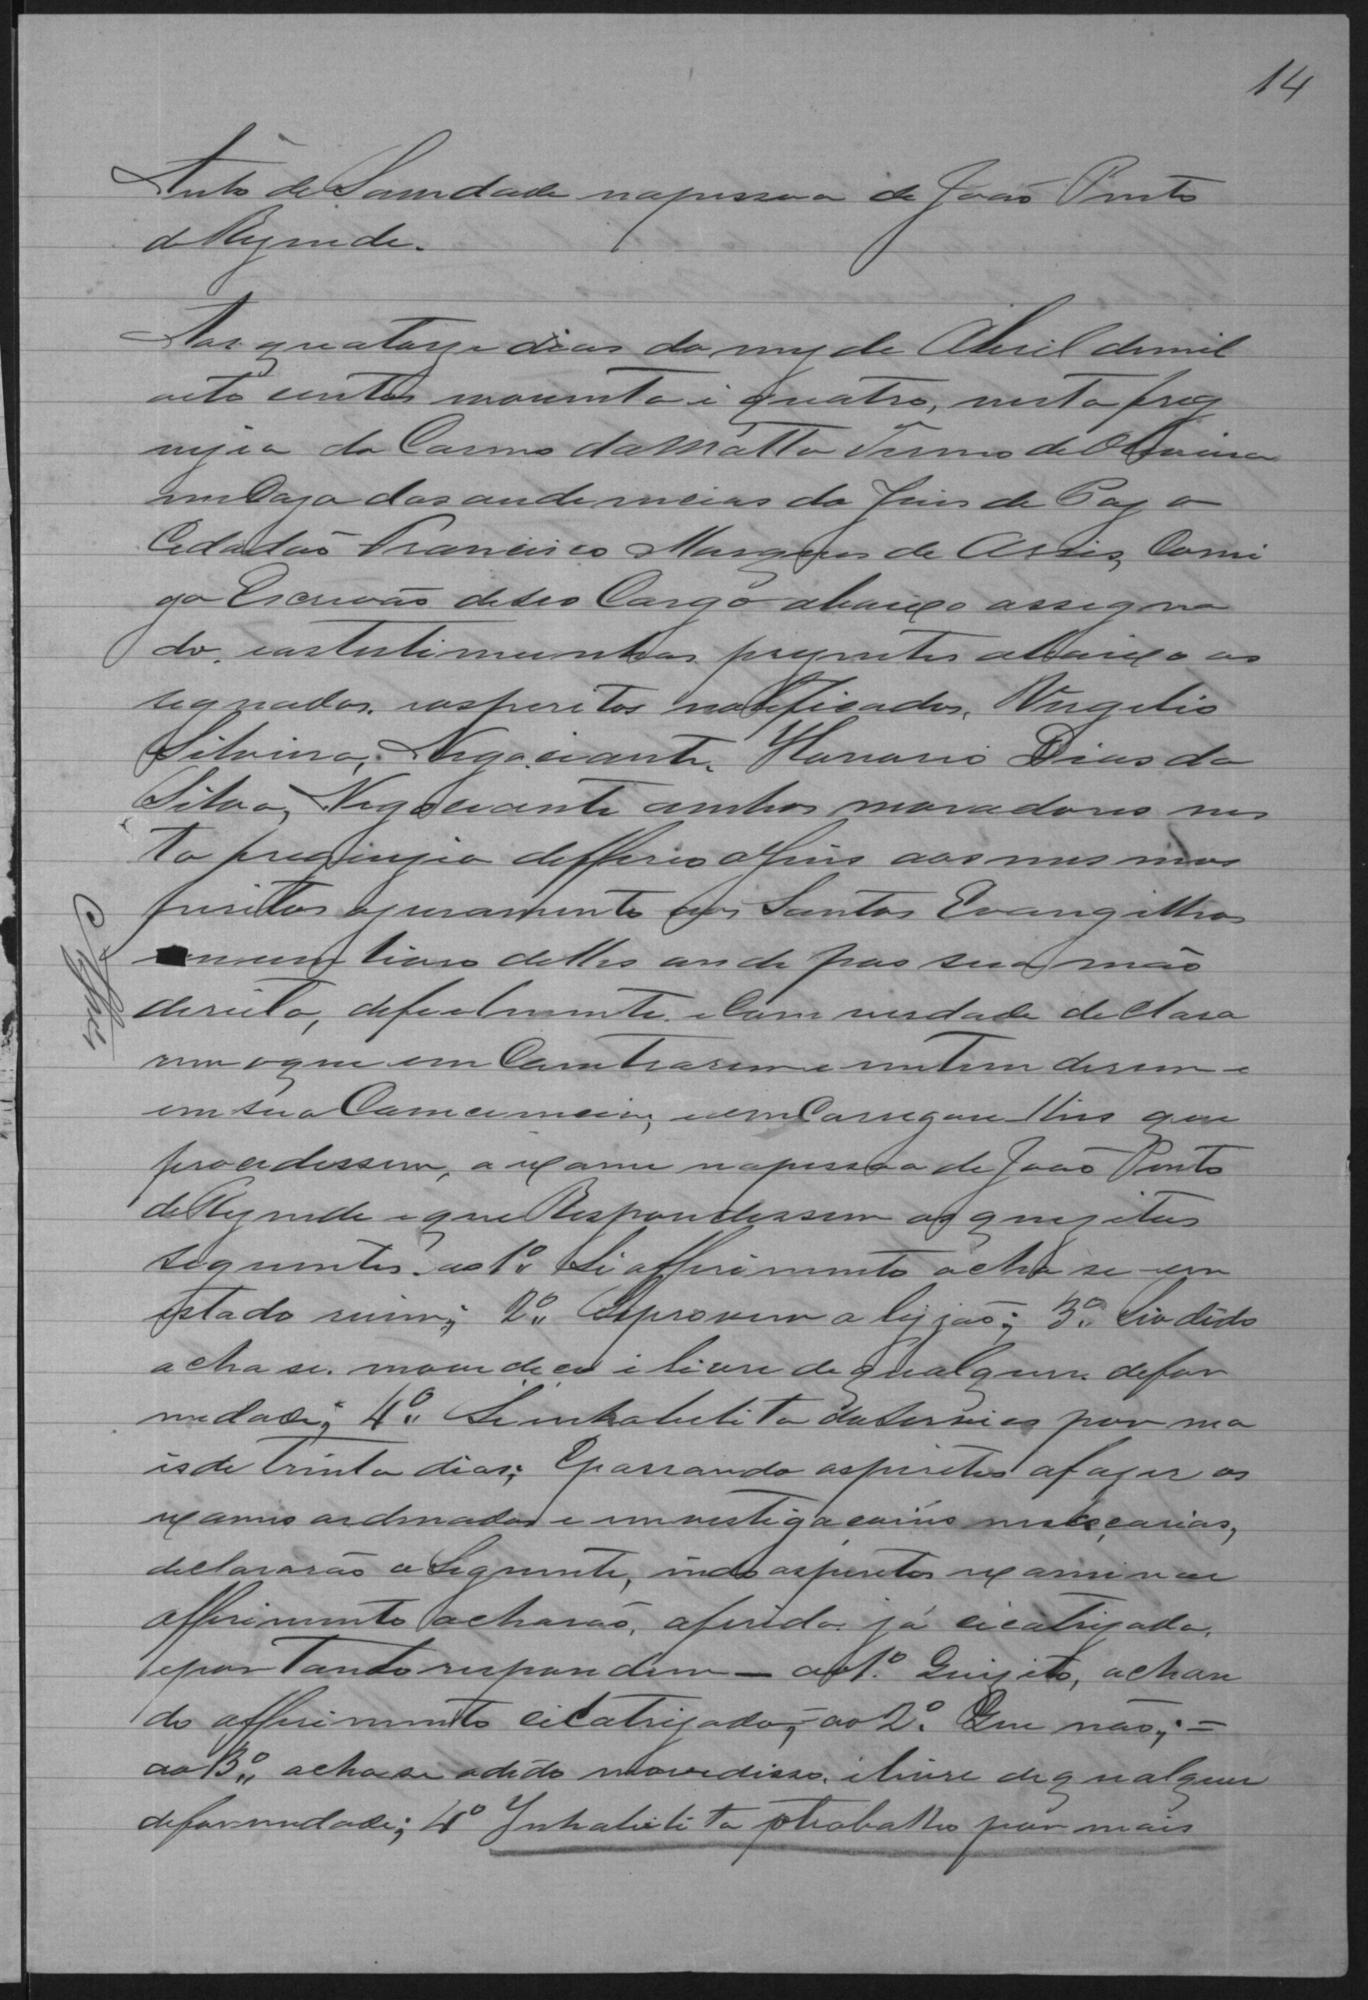 14
Auto de Sanidade na pessoa de João Pinto
de Rezende.
Aos quatorze dias do mez de Abril de mil
oito centos noventa e quatro, nesta freg
uezia do Carmo da Matta Termo de Oliveira
em Caza das audiencias do Juis de Paz o
Cidadão Francisco Marques de Assis, Comi
go Escrivão de seo Cargo abaixo assegna
do, e as testimunhas prezentes abaixo as
segnados, e os peritos notificados, Virgilio
Silveira, Negociante, Honorio Dias da
Silva, Negociante ambos moradores nes
ta freguezia defferio o Juis aos mesmos
peritos o juramento aos Santos Evangelhos
em um livro delles onde pos sua mão
direita, de fielmente e com verdade declara
rem o que em Contrarem e entenderem e
em sua Conciencia, e emCarregou lhes que
procedessem, a exame na pessoa de João Pinto
de Rezende e que Respondessem os quezitos
seguintes. ao 1º Si o fferimento acha se em
estado ruim; 2º Se provem a lezão; 3º Si o dêdo
acha se movedeço e livre de qualquer defor
medade; 4º Se inhabelita do serviço por ma
is de trinta dias; E passando os peritos a fazer os
exames ordenados e investigaçoiñs necesçarias,
declararão o Seguinte, indo os peritos examinar
o fferimento acharão, a ferida já cicatrizada,
e por Tanto respondem — ao 1º Quizito, achan
do o fferimento cicatrizado; ao 2º Que não; =
ao 3º acha se o dêdo movedisso, e livre de qualquer
deformedade; 4º Inhabilita o trabalho por mais